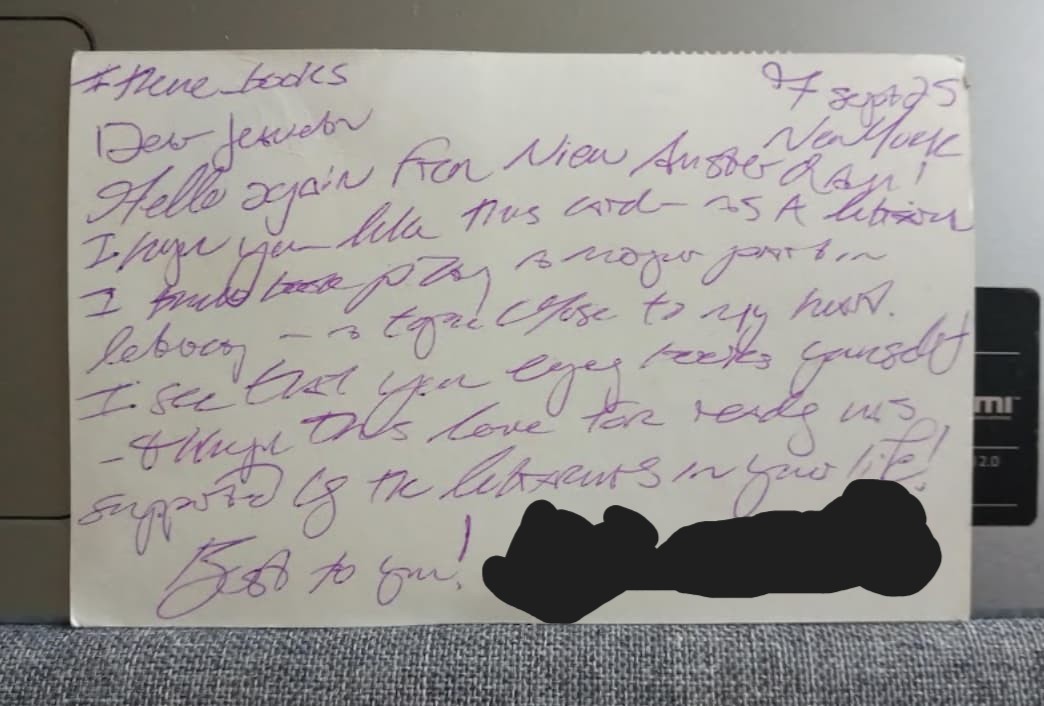 books
7 Sept 25
New York
Dear
Hello again from
I hope you like this card - as a librarian
I play a major part in
literacy - a topic close to my heart.
I see that you enjoy books yourself
- & hope this love for reading was
supported by the librarians in your life!
Best to you!
mi
2.0